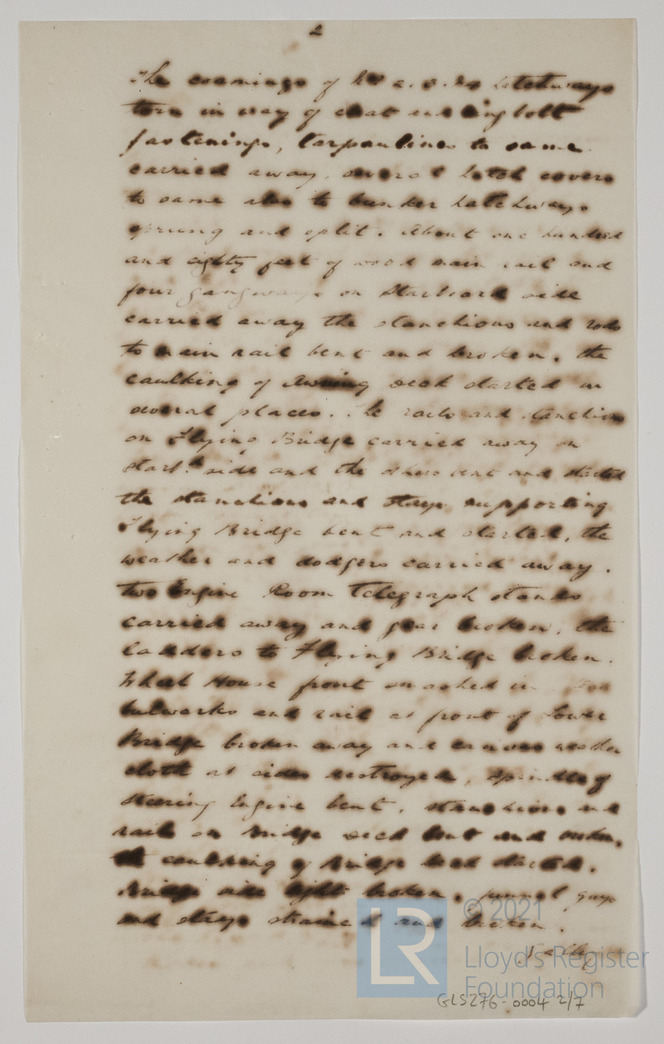 2
The coamings of No 2. & 3. hatchways
torn in way of cleat and ring bolt
fastenings, tarpaulines to same
carried away. several hatch covers
to same also to bunker hatchways
sprung and split. About one hundred
and eighty feet of wood main rail and
four gangways on Starboard side
carried away the stanchions and rods
to main rail bent and broken, the
caulking of Awning deck started in
several places. The rails and stanchions
on Flying Bridge carried away on
starbd side and the others bent and started
the stanchions and stays supporting
Flying Bridge bent and started, the
weather and dodgers carried away.
two Engine Room Telegraph stands
carried away and gear broken, the
ladders to Flying Bridge broken.
Wheel House front smashed in
bulwarks and rail at front of Lower
Bridge broken away and canvas weather
cloth at sides destroyed, spindle of
steering Engine bent, stanchions and
rails on Bridge deck bent and broken,
the caulking of Bridge deck started.
Bridge side light broken, funnel guys
and stays strained and broken.
© 2021
Lloyd's Register
Foundation
LR
GLS276-0004 2/7